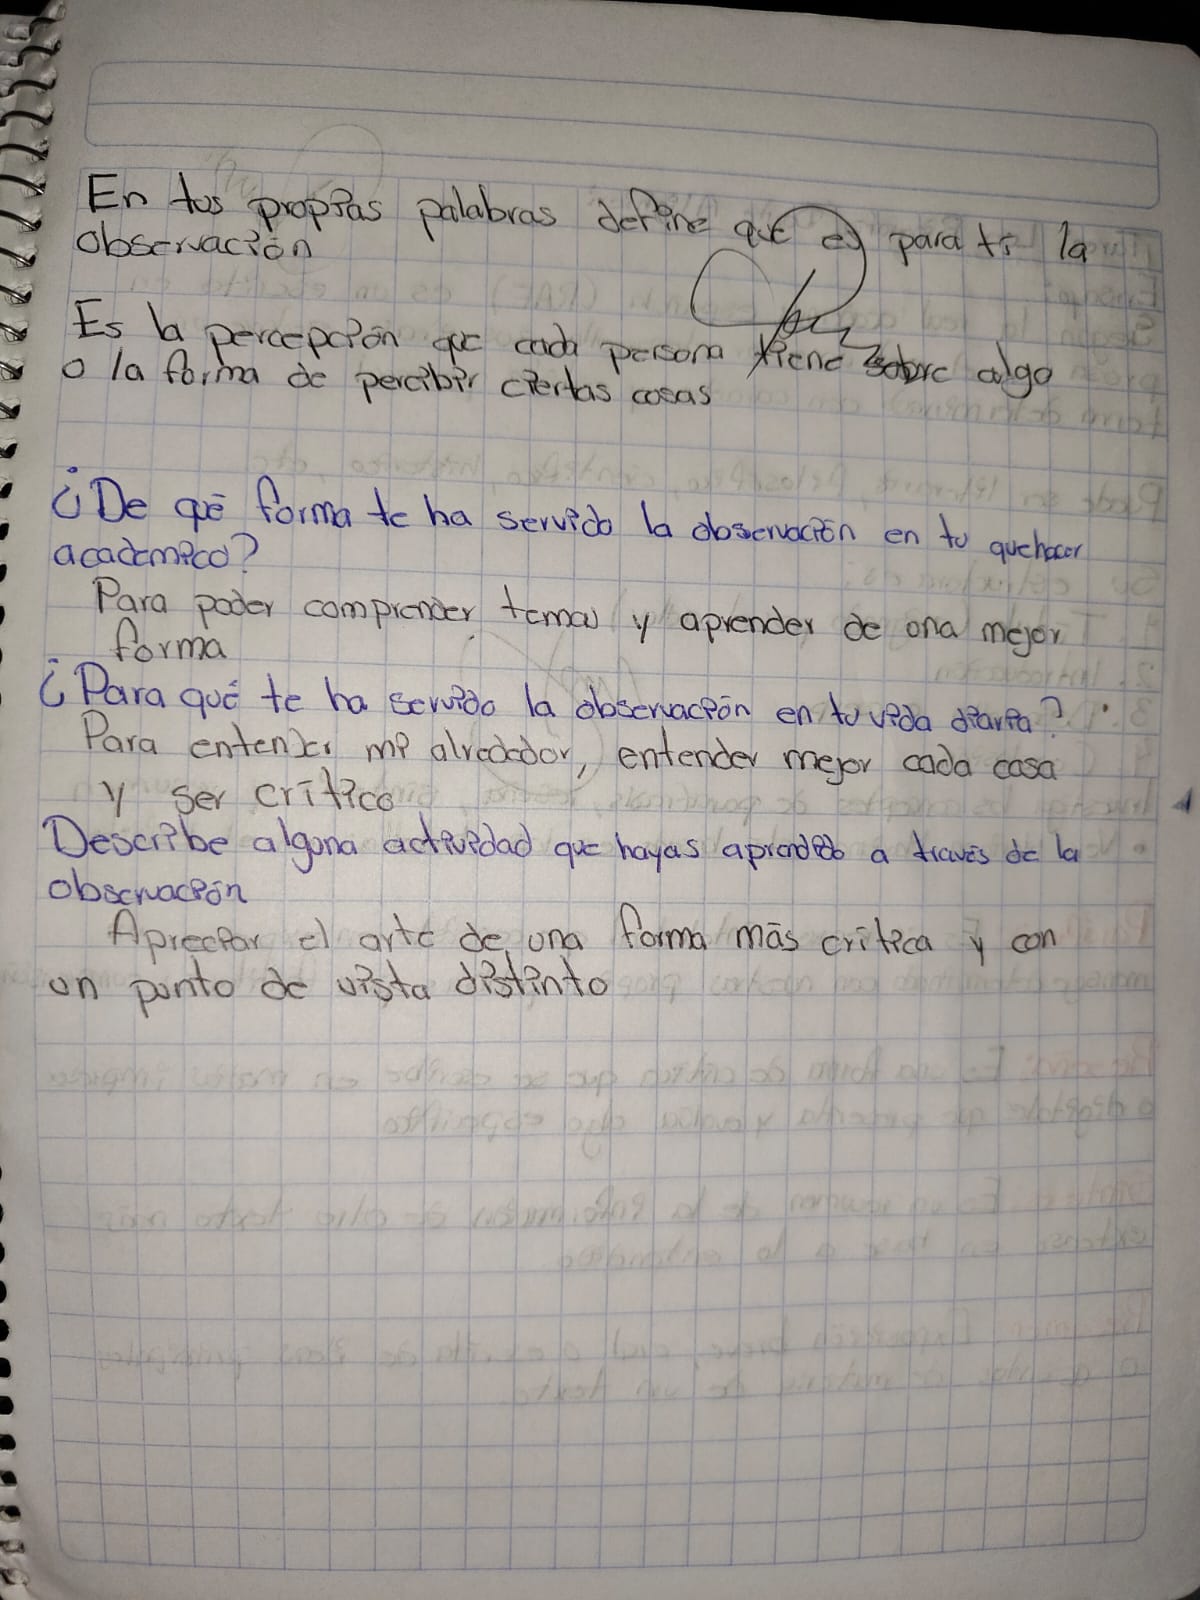 En tus propias palabras define que es para ti la
observación
Es la percepción que cada persona tiene sobre algo
o la forma de percibir ciertas cosas
¿De qué forma te ha servido la observación en tu quehacer
academico?
Para poder comprender temas y aprender de una mejor
forma
¿Para qué te ha servido la observación en tu vida diaria?
Para entender mi alrededor, entender mejor cada casa
y ser crítico
Describe alguna actividad que hayas aprendido a través de la
observación
Apreciar el arte de una forma más crítica y con
un punto de vista distinto